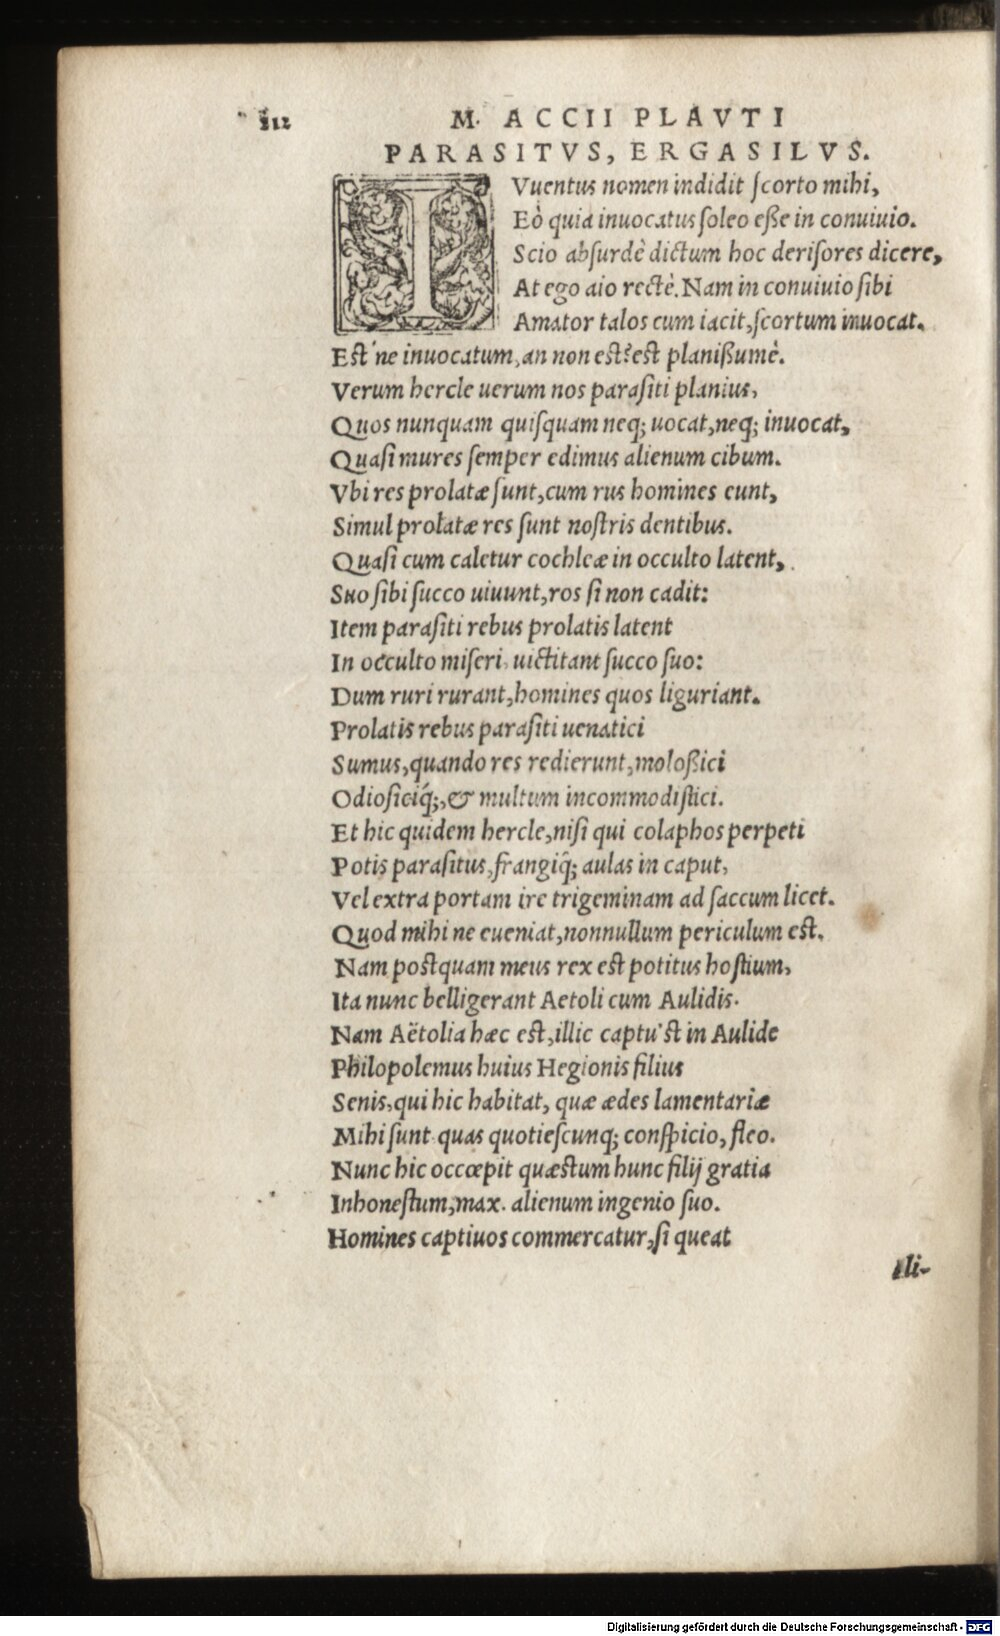 112 M. ACCII PLAVTI
PARASITVS, ERGASILVS.
IVuentus nomen indidit ſcorto mihi,
Eò quia inuocatus ſoleo eſſe in conuiuio.
Scio abſurdè dictum hoc deriſores dicere,
At ego aio rectè. Nam in conuiuio ſibi
Amator talos cum iacit, ſcortum inuocat.
Est'ne inuocatum, an non est? est planißumè.
Verum hercle uerum nos paraſiti planius,
Quos nunquam quiſquam neq; uocat, neq; inuocat,
Quaſi mures ſemper edimus alienum cibum.
Vbi res prolatæ ſunt, cum rus homines eunt,
Simul prolatæ res ſunt noſtris dentibus.
Quaſi cum caletur cochleæ in occulto latent,
Suo ſibi ſucco uiuunt, ros ſi non cadit:
Item paraſiti rebus prolatis latent
In occulto miſeri, uictitant ſucco ſuo:
Dum ruri rurant, homines quos liguriant.
Prolatis rebus paraſiti uenatici
Sumus, quando res redierunt, moloßici
Odioſiciq́;, & multum incommodiſtici.
Et hic quidem hercle, niſi qui colaphos perpeti
Potis paraſitus, frangiq̂; aulas in caput,
Vel extra portam ire trigeminam ad ſaccum licet.
Quod mihi ne eueniat, nonnullum periculum est.
Nam postquam meus rex est potitus hoſtium,
Ita nunc belligerant Aetoli cum Aulidis.
Nam Aëtolia hæc est, illic captu'st in Aulide
Philopolemus huius Hegionis filius
Senis, qui hic habitat, quæ ædes lamentariæ
Mihi ſunt quas quotieſcunq; conſpicio, fleo.
Nunc hic occœpit quæstum hunc filij gratia
Inhoneſtum, max. alienum ingenio ſuo.
Homines captiuos commercatur, ſi queat
Ali-
Digitalisierung gefördert durch die Deutsche Forschungsgemeinschaft - DFG